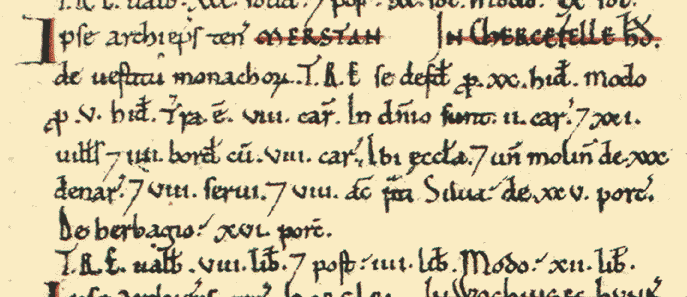 T.R.E. ualb. 7 post.
Ipse archiep̃s ten̄ MERSTAN In CHERCHEFELLE HD̃.
de uestitu monachoꝝ. T.R.E. se defd̄ ꝑ .xx. hid̄. modo
ꝑ .v. hid̄. Tr̃a .ē. viii. car̄. In dn̄io sunt .ii. car̄. 7 xxi.
uilł̃s 7 iiii. bord̄ cū .viii. car̄. Ibi ęccła. 7 un̄ molin̄ de .xxx.
denar̄. 7 viii. serui. 7 viii. ac̄ p̃ti Silua de .xxv. porc̄.
De herbagio. xvi. porc̄.
T.R.E. ualb̄ .viii. lib̄. 7 post .iiii. lib̄. Modo. xii. lib̄.